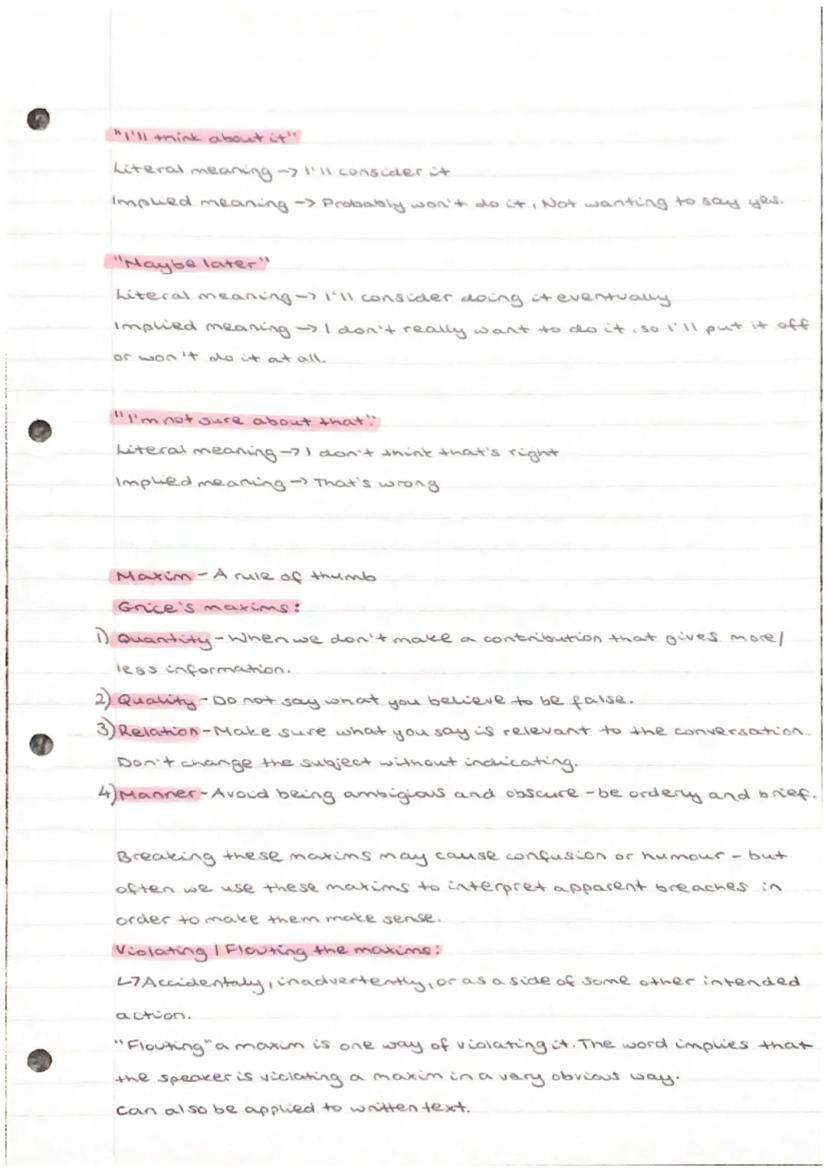 "I'll think about it"
Literal meaning -> I'll consider it
Implied meaning -> Probably won't do it, Not wanting to say yes.
"Maybe later"
Literal meaning -> I'll consider doing it eventually
Implied meaning -> I don't really want to do it, so I'll put it off
or won't do it at all.
"I'm not sure about that".
Literal meaning -> I don't think that's right
Implied meaning -> That's wrong
Maxim - A rule of thumb
Grice's maxims:
1) Quantity - When we don't make a contribution that gives more/
less information.
2) Quality - Do not say what you believe to be false.
3) Relation - Make sure what you say is relevant to the conversation.
Don't change the subject without indicating.
4) Manner - Avoid being ambigious and obscure - be orderly and brief.
Breaking these maxims may cause confusion or humour - but
often we use these maxims to interpret apparent breaches in
order to make them make sense.
Violating / Flouting the maxims:
↳ Accidentaly, inadvertently, or as a side of some other intended
action.
"Flouting" a maxim is one way of violating it. The word implies that
the speaker is violating a maxim in a very obvious way.
Can also be applied to written text.